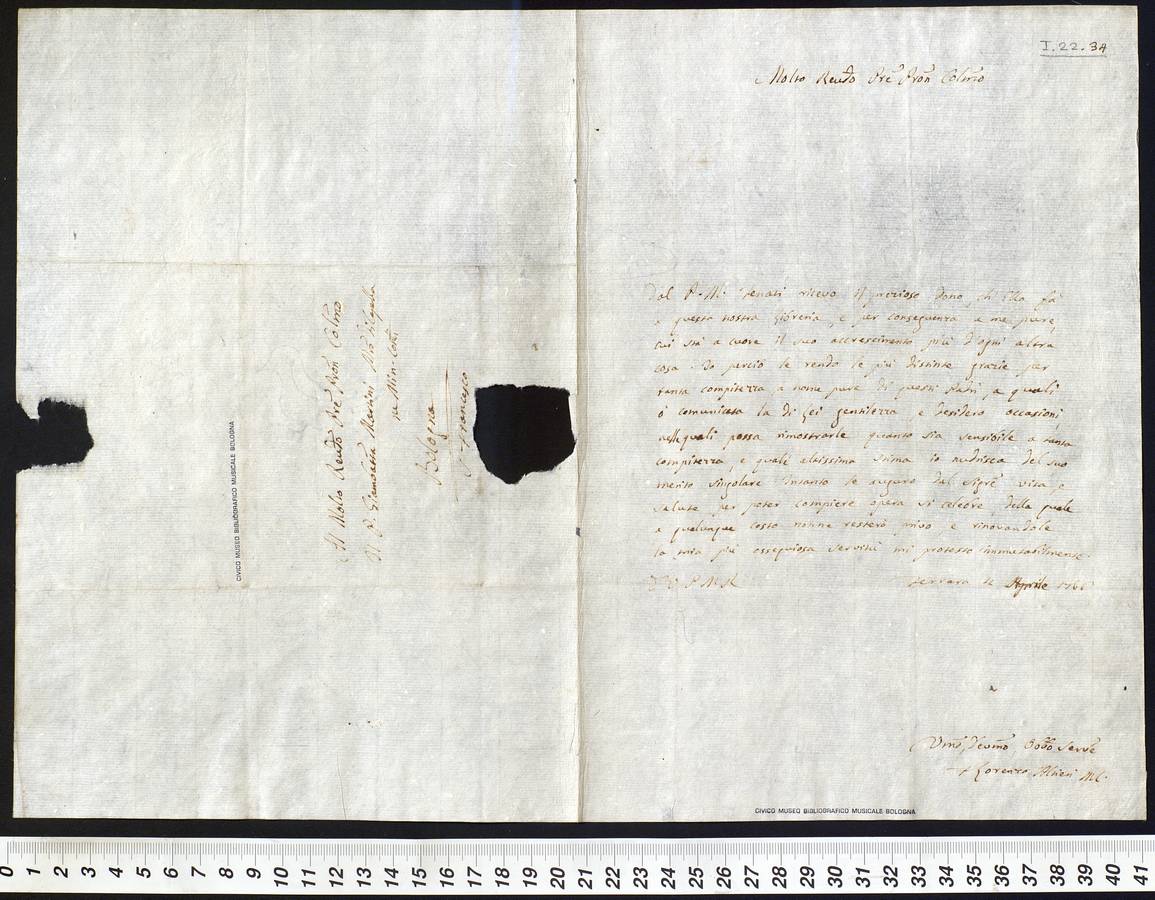 I.22.34
Molto Revdo Pre Pron Colmo
Dal P. M. Zenati ricevo il prezioso dono, ch'Ella fà
a questa nostra Libreria, e per conseguenza a me pure,
cui stà a cuore il suo accrescimento più d'ogni altra
cosa. Io perciò le rendo le più distinte grazie per
tanta compitezza a nome pure di questi Padri, a quali
ò comunicata la di Lei gentilezza e desidero occasioni,
nelle quali possa rimostrarle quanto sia sensibile a tanta
compitezza, e quale altissima stima io nudrisca del suo
merito singolare. Intanto le auguro dal Sigre vita, e
salute per poter compiere opera sì celebre, della quale
a qualunque costo non ne resterò privo e rinovandole
la mia più ossequiosa servitù mi protesto immutabilmente
D V P M R
Ferrara Aprile
Umo Devmo Obbo Serve
F. Lorenzo Altieri M.C.
CIVICO MUSEO BIBLIOGRAFICO MUSICALE BOLOGNA
Al Molto Revdo Pre Pron Colmo
Il P. Giambatta Martini Mro di Capella
ne Min. Conti
Bologna
S. Francesco
CIVICO MUSEO BIBLIOGRAFICO MUSICALE BOLOGNA
0 1 2 3 4 5 6 7 8 9 10 11 12 13 14 15 16 17 18 19 20 21 22 23 24 25 26 27 28 29 30 31 32 33 34 35 36 37 38 39 40 41